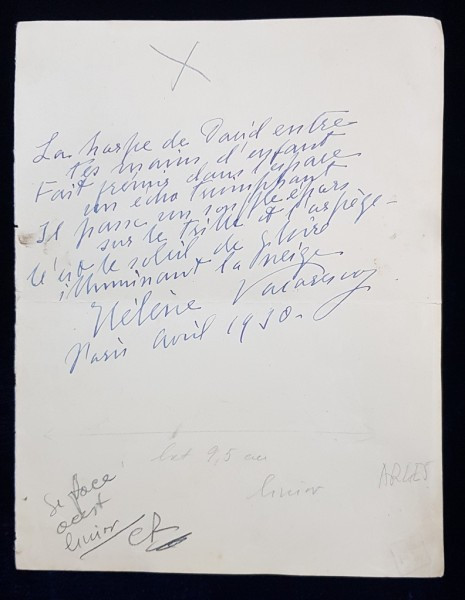 La harpe de David entre
tes mains d'enfant
Fait frémir dans l'espace
un écho triomphant
Il passe un souffle épars
sur le trille et l'arpège
C'est le soleil de gloire
illuminant la neige
Hélène Vacaresco
Paris avril 1930.
lat 9,5 cm
linior
ARLES
Se face
acest
linior